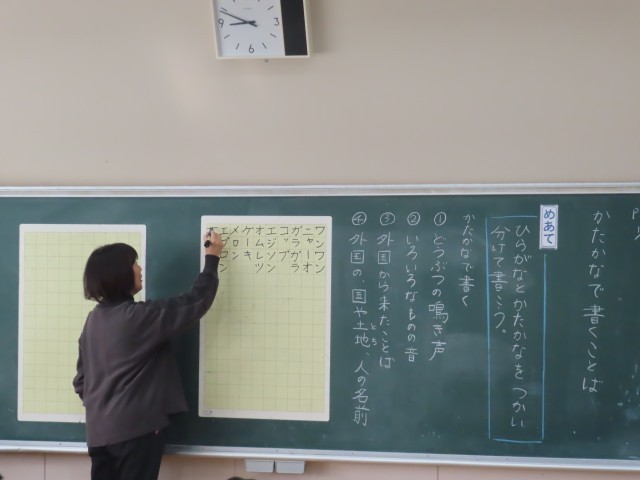 かたかなで書くことば
めあて
ひらがなとかたかなをつかい
分けて書こう。
かたかなで書く
①どうぶつの鳴き声
②いろいろなものの音
③外国から来たことば
④外国の、国や土地、人の名前
とち
ワンワン
ニャーオ
ガラガラ
コップ
エジソン
オムレツ
ケーキ
メロン
エプロン
9
3
6